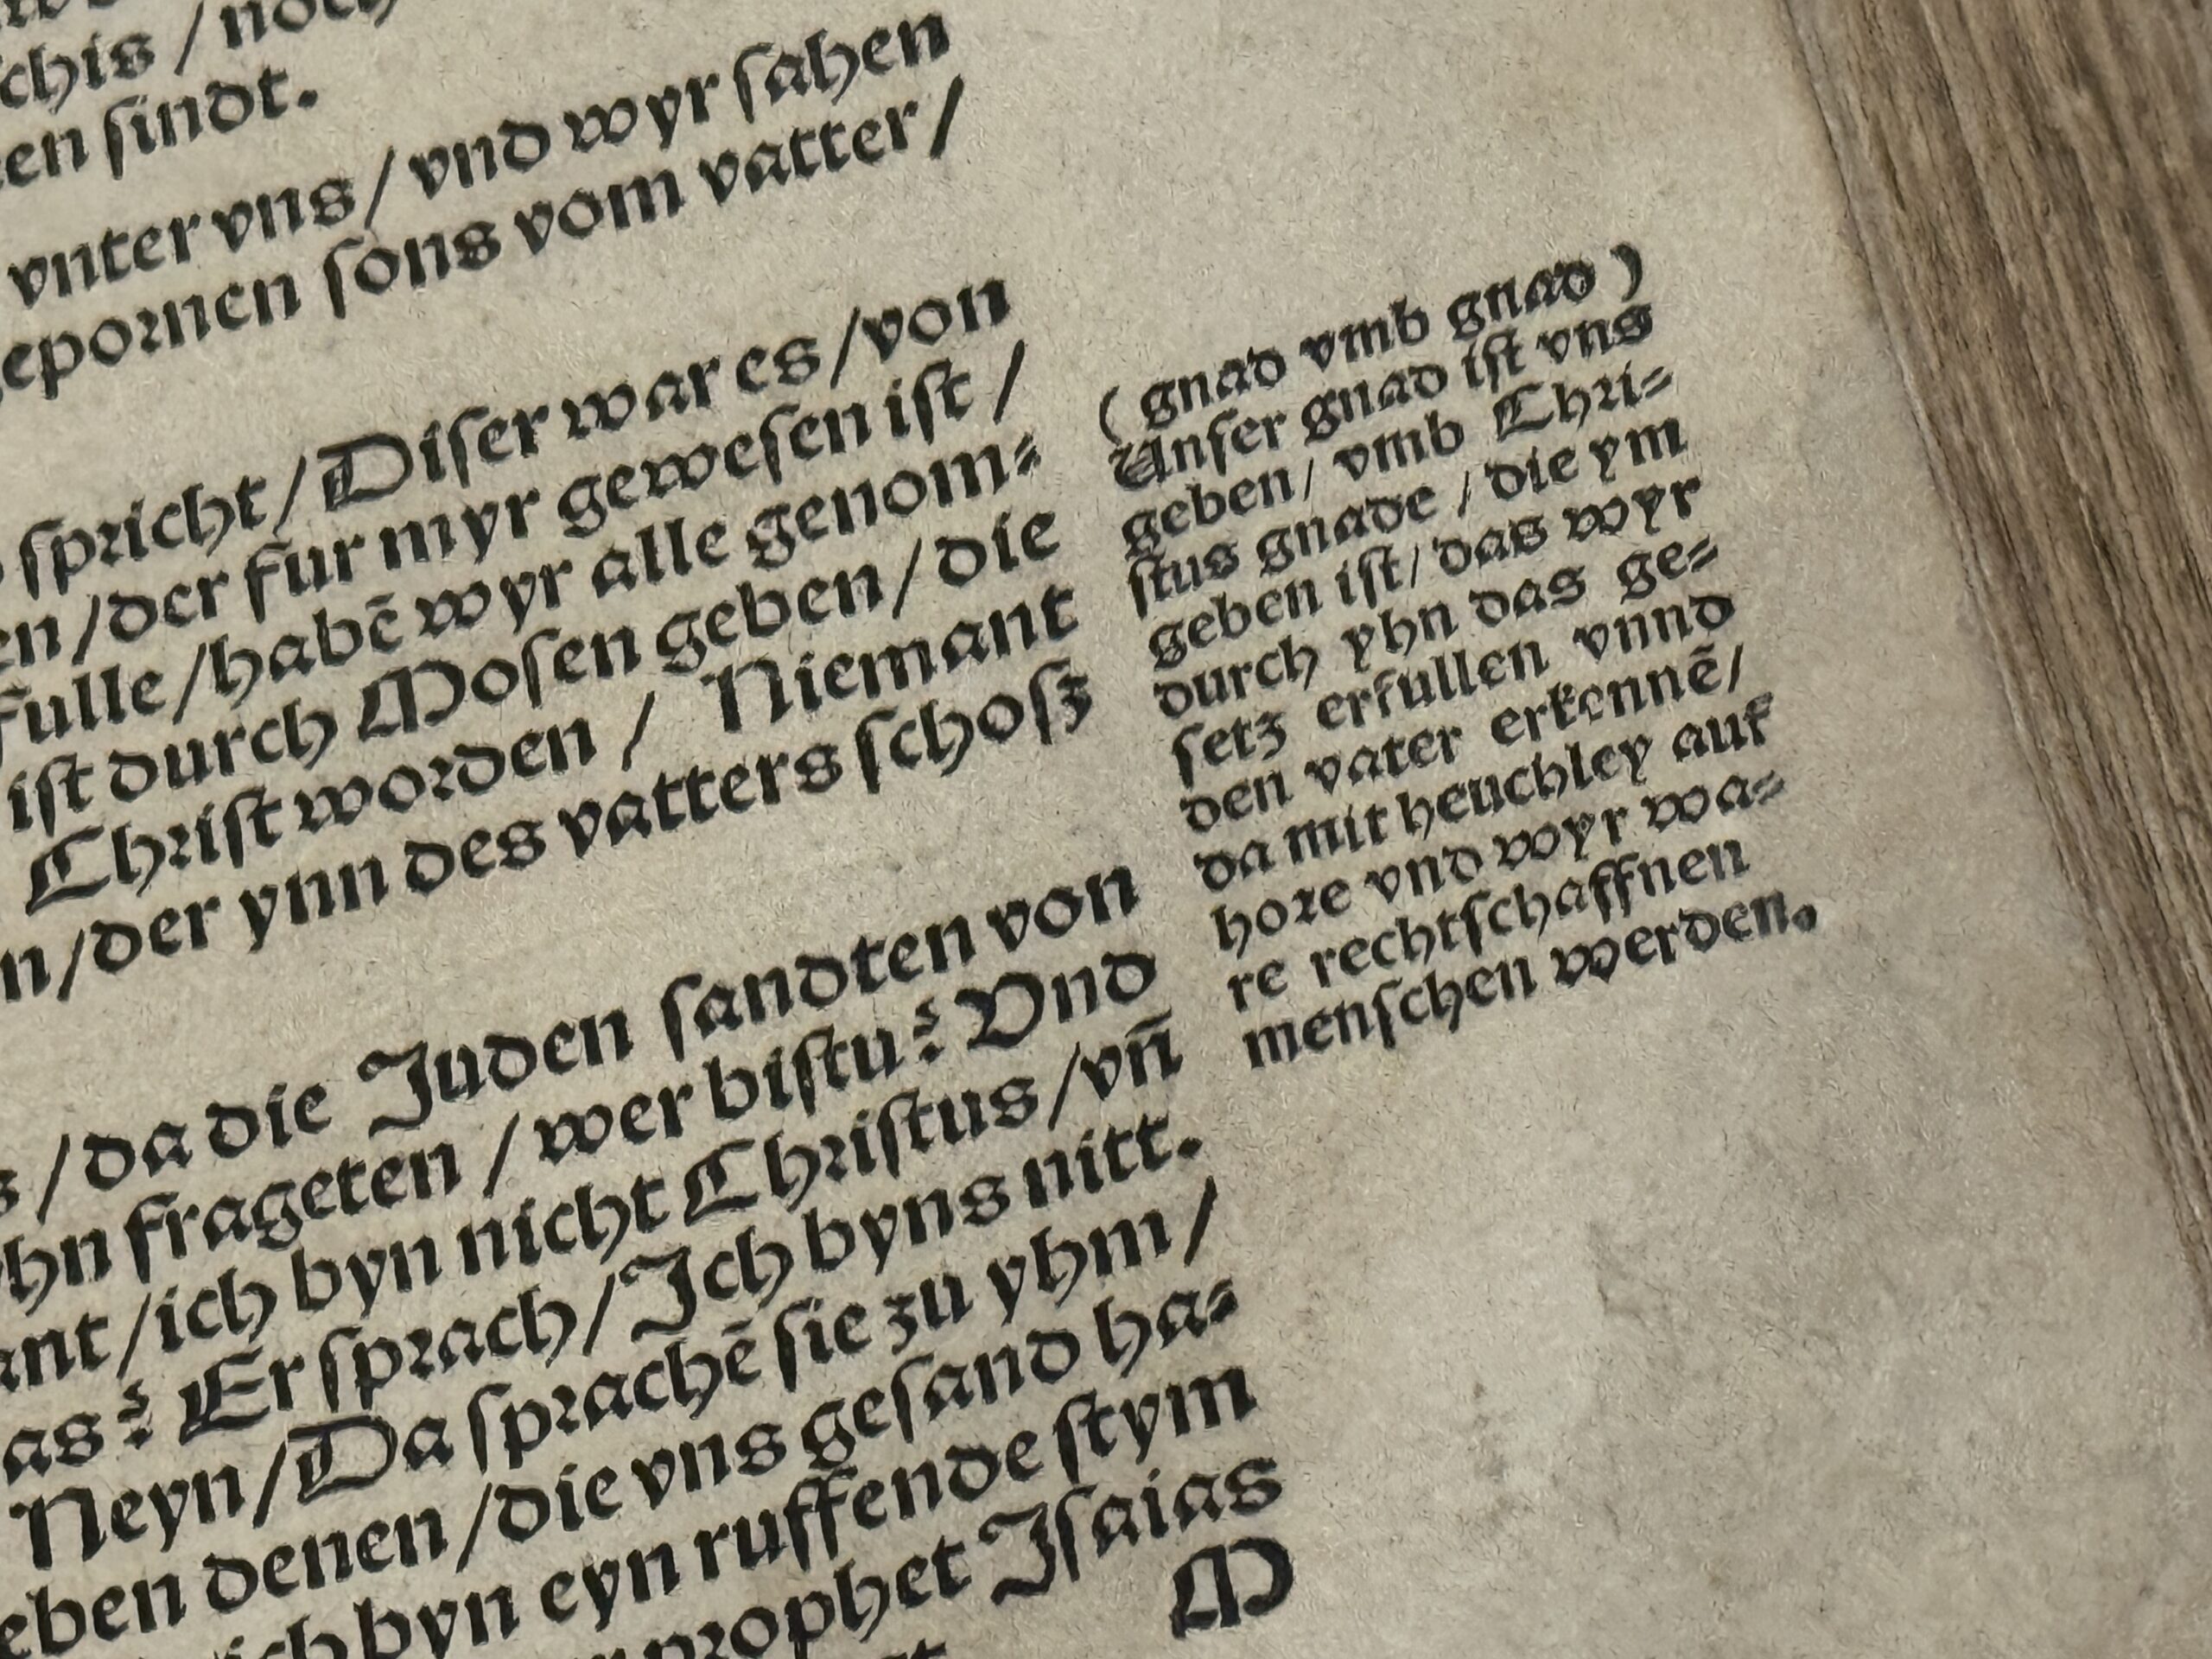 schis / noch
sindt.
vnter vns / vnd wyr sahen
sons vom vatter /
spricht / Diser war es / von
der fur myr gewesen ist /
fulle / habē wyr alle genom⸗
ist durch Mosen geben / die
Christ worden / Niemant
der ynn des vatters schosz
( gnad vmb gnad )
Unser gnad ist vns
geben / vmb Chri⸗
stus gnade / die ym
geben ist / das wyr
durch yhn das ge⸗
setz erfullen vnnd
den vater erkennē /
da mit heuchley auf
hore vnd wyr wa⸗
re rechtschaffnen
menschen werden.
/ da die Juden sandten von
frageten / wer bistu? Vnd
/ ich byn nicht Christus / vñ
Er sprach / Ich byns nitt.
Neyn / Da sprachē sie zu yhm /
denen / die vns gesand ha⸗
ich byn eyn ruffende stym
prophet Isaias
M